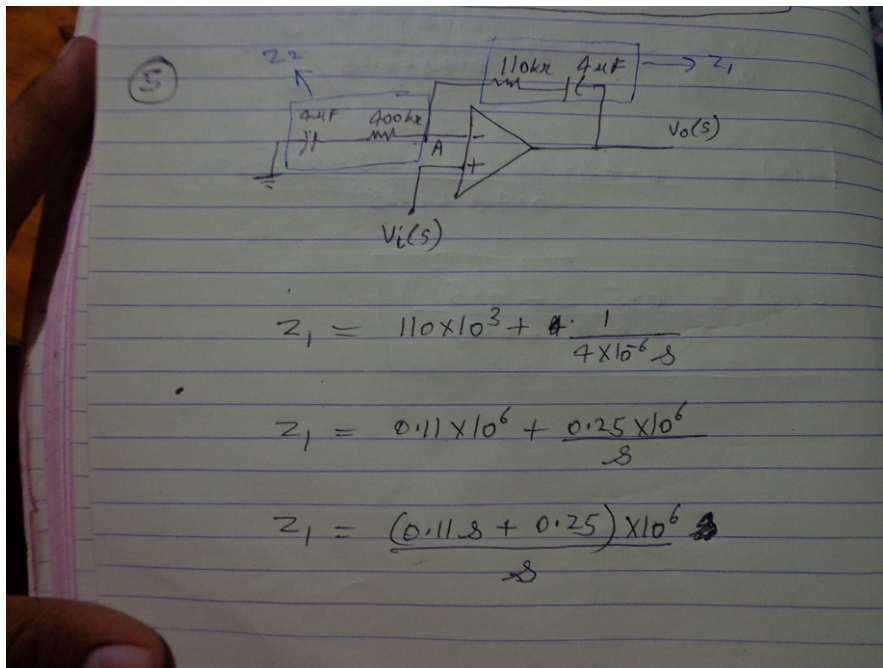 5
Z2
110kΩ 4μF → Z1
4μF 400kΩ
A
-
+
Vo(s)
Vi(s)
Z1 = 110×10³ + 1/(4×10⁻⁶ s)
Z1 = 0.11×10⁶ + 0.25×10⁶/s
Z1 = (0.11s + 0.25)×10⁶/s